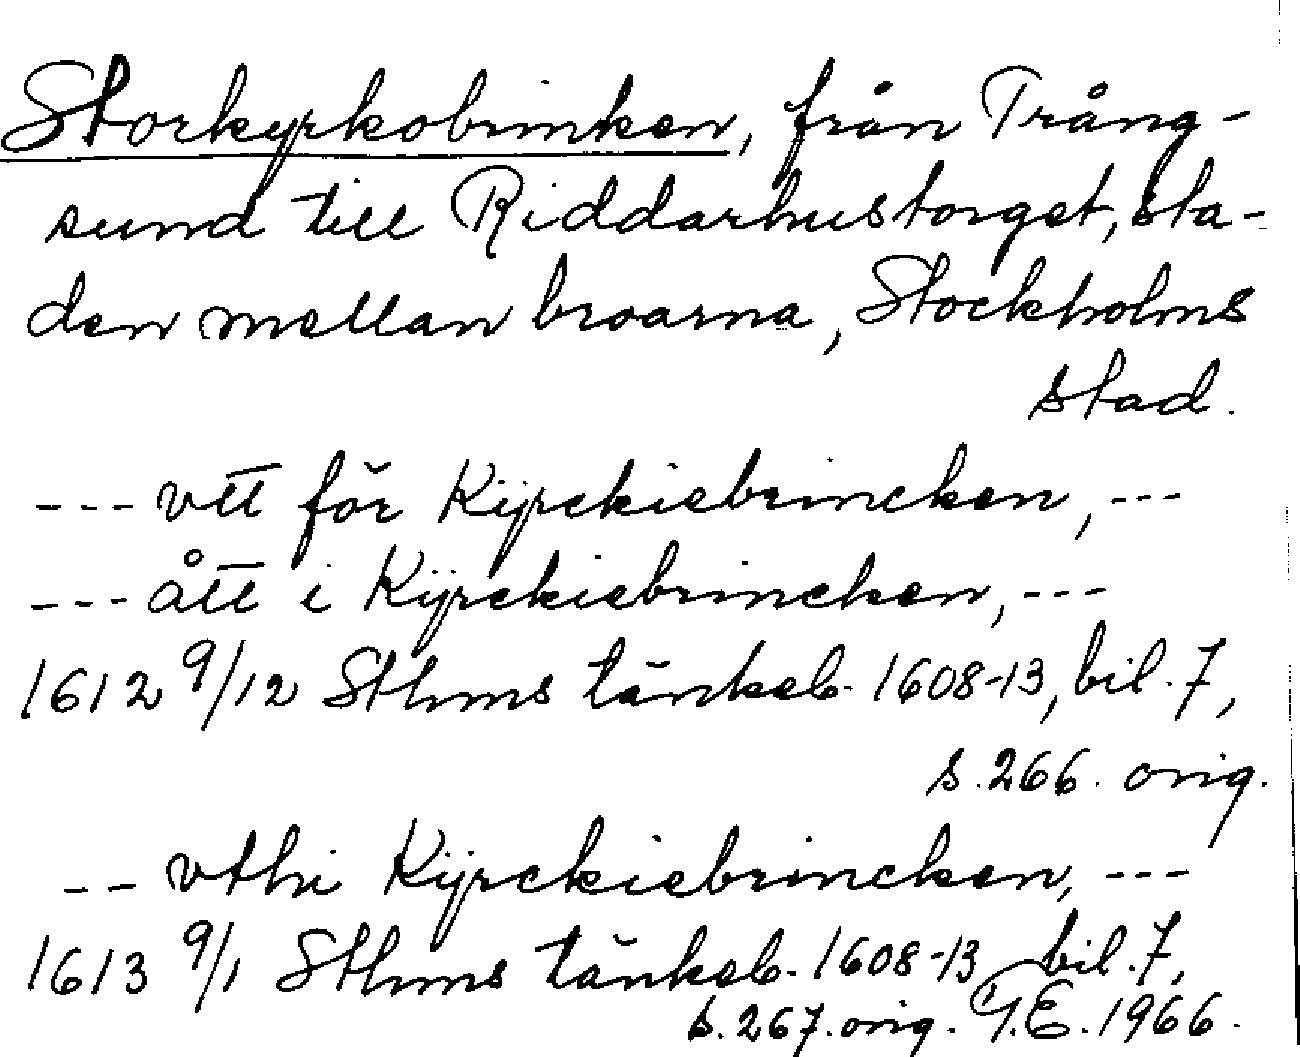 Storkyrkobrinken, från Trång-
sund till Riddarhustorget, sta-
den mellan broarna, Stockholms
stad.
--- vtt för Kÿrckiebrincken, ---
--- ått i Kÿrckiebrincken, ---
1612 9/12 Sthms tänkeb. 1608-13, bil. 7,
s. 266. orig.
-- vthi Kÿrckiebrincken, ---
1613 9/1 Sthms tänkeb. 1608-13 bil. 7,
s. 267. orig. G.E. 1966.